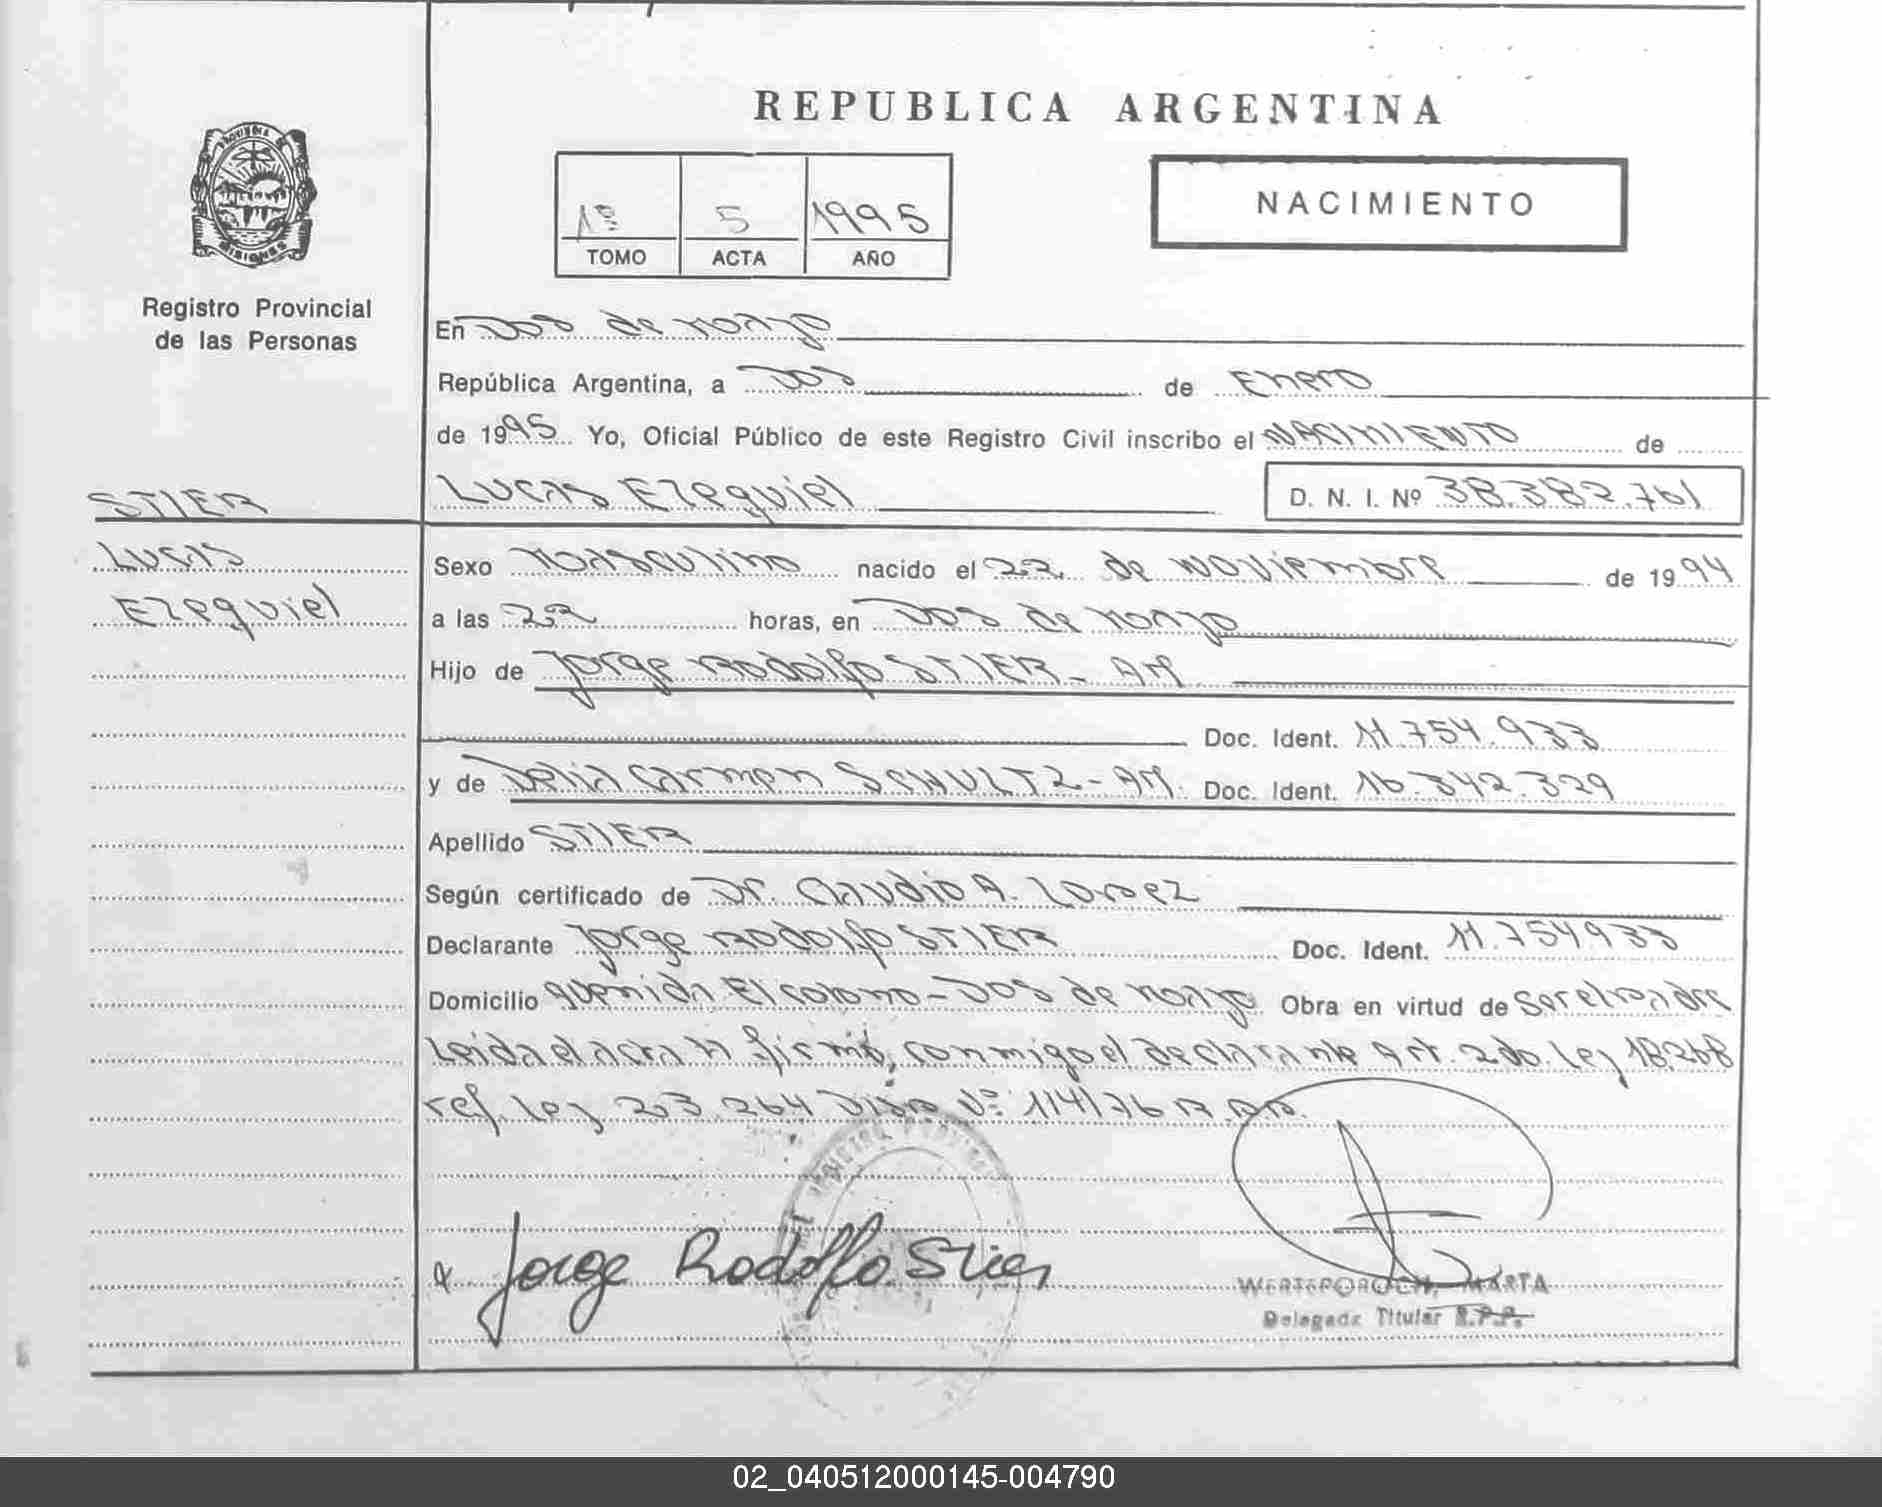 REPUBLICA ARGENTINA
PROVINCIA
MISIONES
Registro Provincial
de las Personas
1º 5 1995
TOMO ACTA AÑO
NACIMIENTO
En Dos de Mayo
República Argentina, a Dos de Enero
de 1995 Yo, Oficial Público de este Registro Civil inscribo el NACIMIENTO de
STIER
Lucas
Ezequiel
Lucas Ezequiel D. N. I. Nº 38.382.761
Sexo Masculino nacido el 22 de Noviembre de 1994
a las 22 horas, en Dos de Mayo
Hijo de Jorge Rodolfo STIER - AM
Doc. Ident. 11.754.933
y de Delia Carmen SCHULTZ - AM. Doc. Ident. 16.342.329
Apellido STIER
Según certificado de Dr. Claudio A. Lopez
Declarante Jorge Rodolfo STIER Doc. Ident. 11.754933
Domicilio Avenida El Colono - Dos de Mayo Obra en virtud de Ser el Padre
Leida el acta firmó, conmigo el declarante Art. 2do. Ley 18.268
ref. Ley 23.264 Disp. Nº 114/76 R.P.P.
Jorge Rodolfo Stier
MARTA
Delegada Titular R.P.P.
02_040512000145-004790